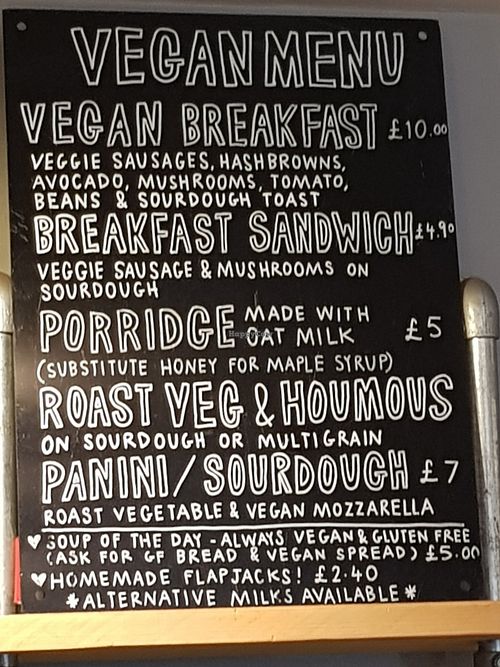 VEGAN MENU
VEGAN BREAKFAST £10.00
VEGGIE SAUSAGES, HASHBROWNS,
AVOCADO, MUSHROOMS, TOMATO,
BEANS & SOURDOUGH TOAST
BREAKFAST SANDWICH £4.90
VEGGIE SAUSAGE & MUSHROOMS ON
SOURDOUGH
PORRIDGE MADE WITH
OAT MILK £5
(SUBSTITUTE HONEY FOR MAPLE SYRUP)
ROAST VEG & HOUMOUS
ON SOURDOUGH OR MULTIGRAIN
PANINI/SOURDOUGH £7
ROAST VEGETABLE & VEGAN MOZZARELLA
♥ SOUP OF THE DAY - ALWAYS VEGAN & GLUTEN FREE
(ASK FOR GF BREAD & VEGAN SPREAD) £5.00
♥ HOMEMADE FLAPJACKS! £2.40
*ALTERNATIVE MILKS AVAILABLE*